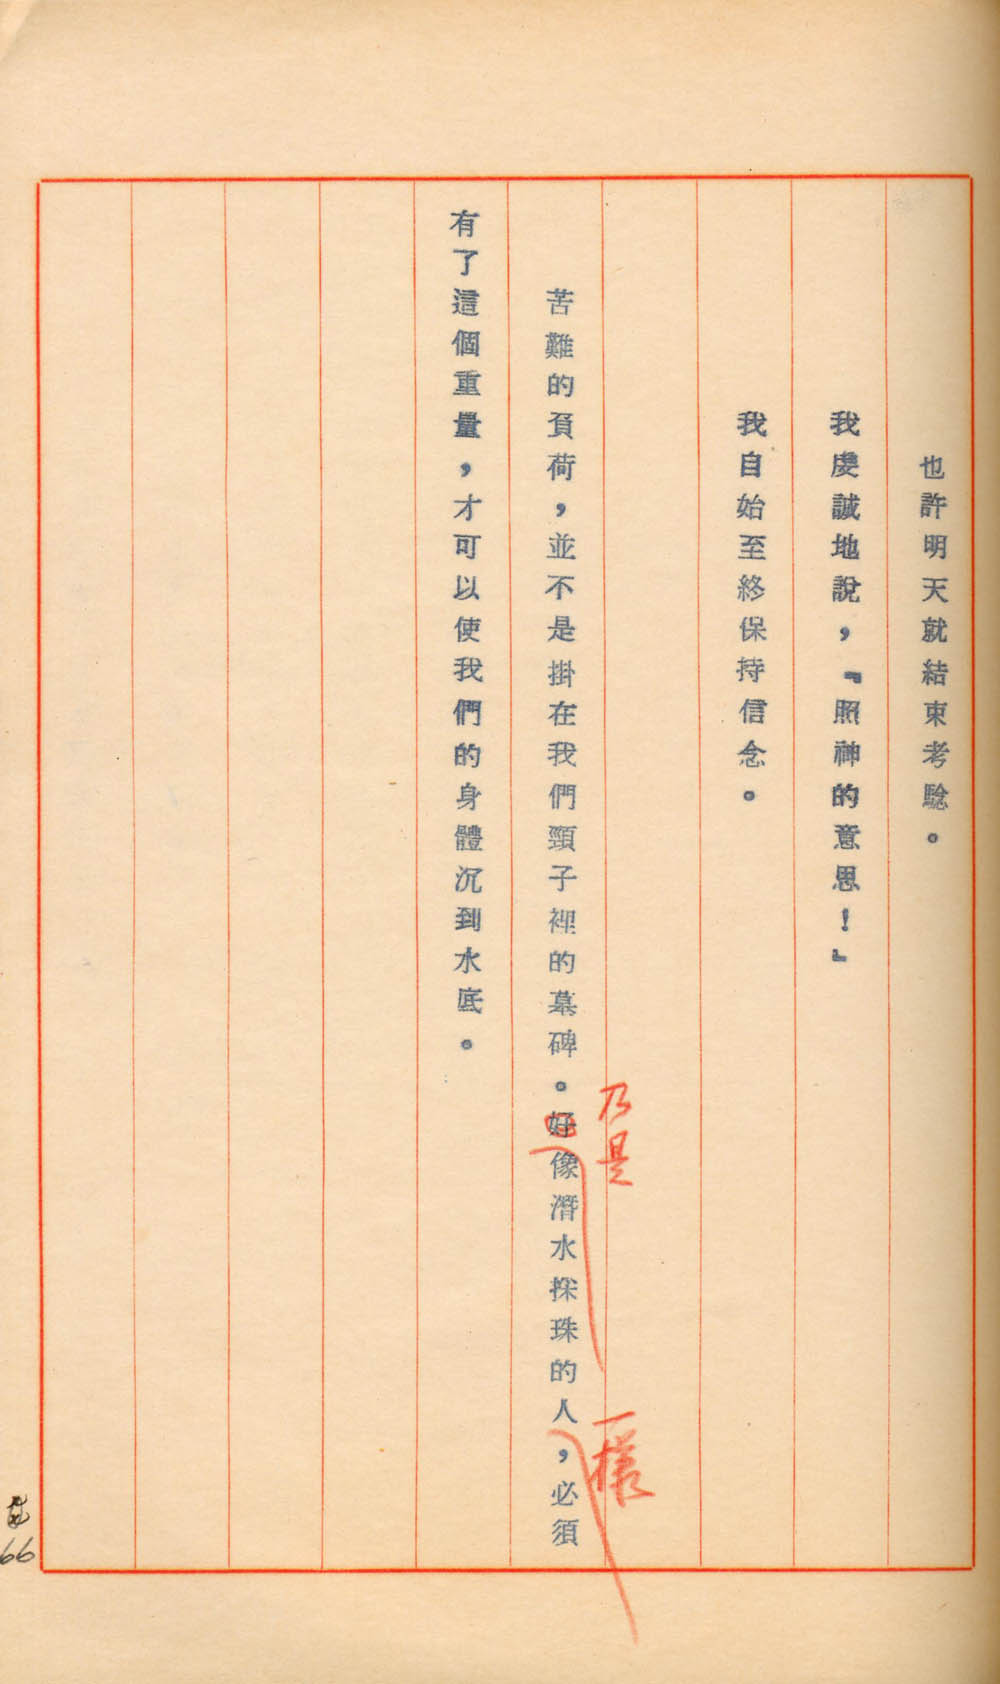 也許明天就結束考驗。
我虔誠地說，『照神的意思！』
我自始至終保持信念。
苦難的負荷，並不是掛在我們頸子裡的墓碑。好像潛水採珠的人，必須
乃是
一樣
有了這個重量，才可以使我們的身體沉到水底。
66